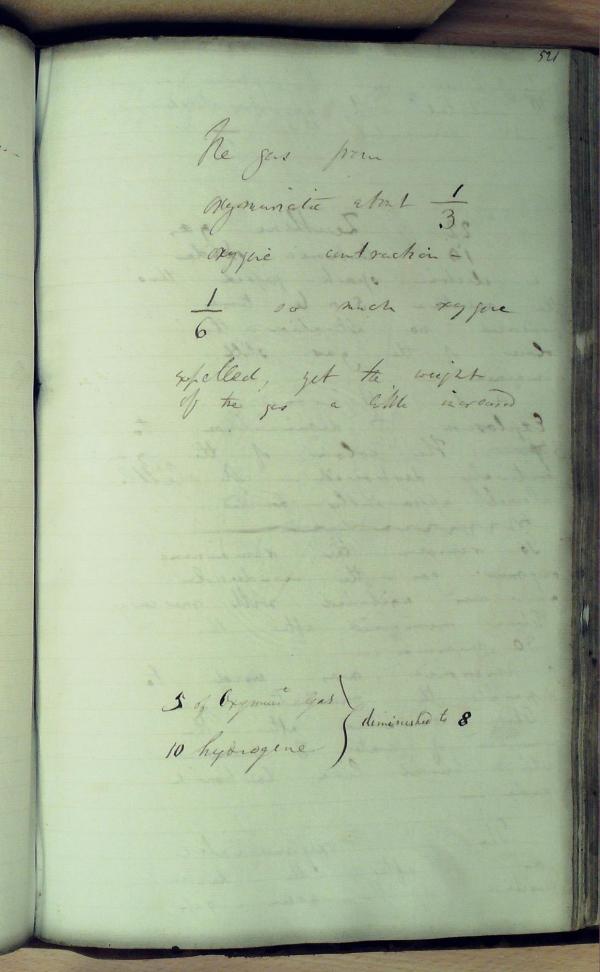 521
The gas from
oxymuriatic about 1/3
oxygene contraction -
1/6 so much oxygene
expelled, yet the weight
of the gas a little increased
5 of Oxymurc Gas
10 hydrogene } diminished to 8